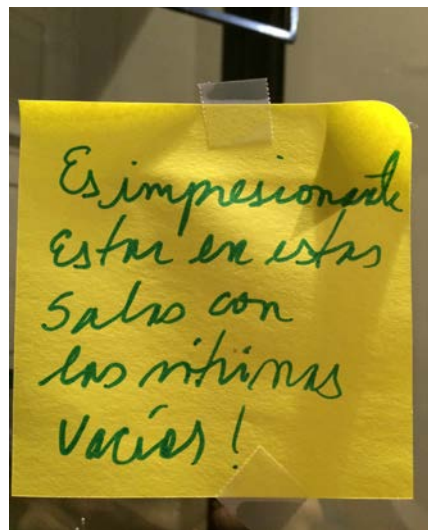 Es impresionante
Estar en estas
Salas con
las vitrinas
Vacías!